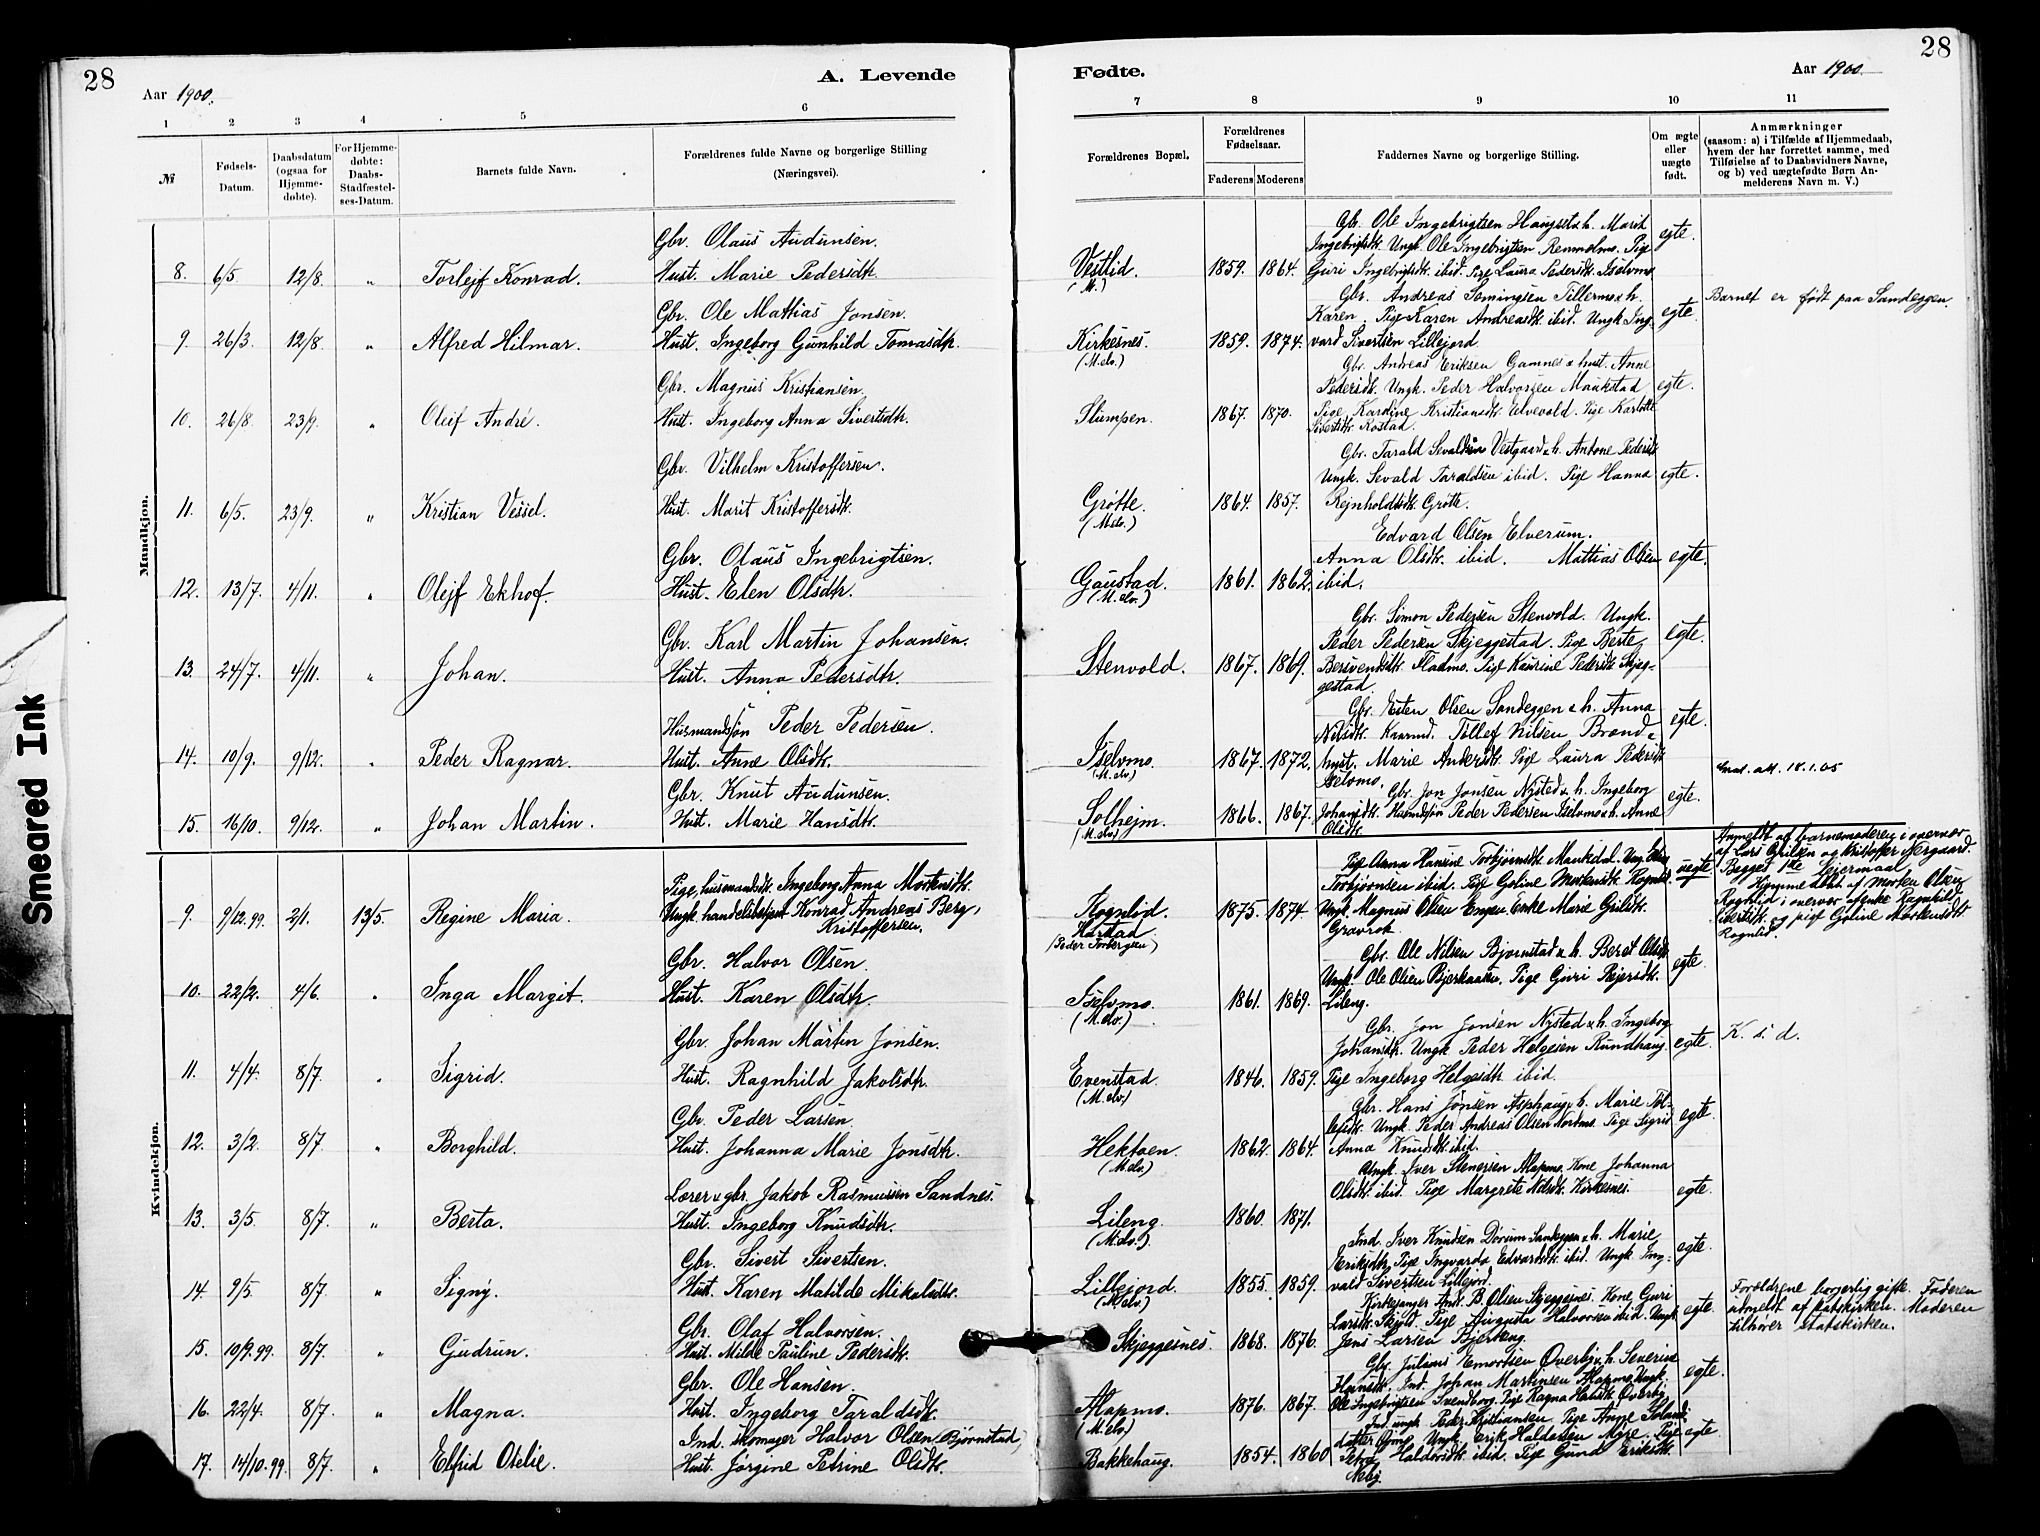 28
A. Levende
Fødte.
28
Aar 1900.
Aar 1900.
1 2 3 4 5 6 7 8 9 10 11
№
Fødsels-
Datum.
Daabsdatum
(ogsaa for
Hjemme-
døbte).
For Hjemme-
døbte:
Daabs-
Stadfæstel-
ses-Datum.
Barnets fulde Navn.
Forældrenes fulde Navne og borgerlige Stilling
(Næringsvei).
Forældrenes Bopæl.
Forældrenes
Fødselsaar.
Faderens Moderens
Faddernes Navne og borgerlige Stilling.
Om ægte
eller
uægte
født.
Anmærkninger
(saasom: a) i Tilfælde af Hjemmedaab,
hvem der har forrettet samme, med
Tilføielse af to Daabsvidners Navne,
og b) ved uægtefødte Børn An-
melderens Navn m. V.)
Mandkjøn.
Gbr. Olaus Audunsen.
8. 6/5 12/8. " Torlejf Konrad. Hust. Marie Pedersdtr.
Vestlid. 1859. 1864.
(M.)
Gbr. Ole Ingebrigtsen Haugset & h. Marit
Ingebrigtsdtr. Ungk. Ole Ingebrigtsen Renmelmo. Pige
Guri Ingebrigtsdtr. ibid. Pige Laura Pedersdtr. Iselvmo
egte.
Gbr. Ole Mattias Jonsen.
9. 26/3. 12/8. " Alfred Hilmar. Hust. Ingeborg Gunhild Tomasdtr.
Kirkesnes. 1859. 1874.
(M.elv.)
Gbr. Andreas Somingsen Tillermo & h.
Karen. Pige Karen Andreasdtr. ibid. Ungk. Ing-
vard Sivertsen Lillejord
egte.
Barnet er født paa Sandeggen
Gbr. Magnus Kristiansen
10. 26/8. 23/9. " Oluf André. Hust. Ingeborg Anna Sivertsdtr.
Slumpen. 1867. 1870.
Gbr. Andreas Eriksen Gamnes & hust. Anne
Pedersdtr. Ungk. Peder Halvorsen Maukstad
Pige Kardine Kristiansdtr. Elvevold. Pige Karlotte
Sivertsdtr. Rostad.
egte.
Gbr. Vilhelm Kristoffersen.
11. 6/5. 23/9. " Kristian Vessel. Hust. Marit Kristoffersdtr.
Grøtte. 1864. 1857.
(M.elv.)
Gbr. Tarald Sevaldsen Vestgaard & h. Antone Pedersdtr
Ungk. Sevald Taraldsen ibid. Pige Hanna
Rejnholdtsdtr. Grøtte.
egte.
Gbr. Olaus Ingebrigtsen.
12. 13/7. 4/11. " Olejf Ekhof. Hust. Elen Olsdtr.
Gaustad. 1861. 1862.
(M.elv.)
Edvard Olsen Elverum.
Anna Olsdtr. ibid. Mattias Olsen
ibid.
egte.
Gbr. Karl Martin Johansen.
13. 24/7. 4/11. " Johan. Hust. Anna Pedersdtr.
Stenvold. 1867. 1869.
Gbr. Simon Pedersen Stenvold. Ungk.
Peder Pedersen Skjeggestad. Pige Berte
Bersvendsdtr. Fladmo. Pige Kaurine Pedersdtr. Skjeg-
gestad.
egte.
Husmandssøn Peder Pedersen.
14. 10/9. 9/12. " Peder Ragnar. Hust. Anne Olsdtr.
Iselvmo. 1867. 1872.
(M.elv.)
Gbr. Esten Olsen Sandeggen & h. Anna
Nilsdtr. Tollef Nilsen Brand &
hust. Marie Andersdtr. Pige Laura Pedersdtr
Iselvmo.
egte.
att. 18.1.05
Gbr. Knut Audunsen.
15. 16/10. 9/12. " Johan Martin. Hust. Marie Hansdtr.
Solhejm. 1866. 1867.
(M.elv.)
Gbr. Jon Jonsen Nysted & h. Ingeborg
Johansdtr. Husmdssøn Peder Pedersen Iselvmo & h. Anne
Olsdtr.
egte.
Kvindekjøn.
Pige, husmandsdtr. Ingeborg Anna Mortensdtr.
9. 9/12.99. 2/1. 13/5. Regine Maria. Ungk. handelsbetjent Konrad Andreas Berg
Kristoffersen.
Rognlid. 1875. 1874
Harstad
(Peder Torbergsen)
Pige Anna Hansine Torbjørnsdtr. Maukdal. Ung.
Torbjørnsen ibid. Pige Goline Mortensdtr. Rognlid.
Ungk. Magnus Olsen Engen. Enke Marie
Gravrok.
uegte.
Anmeldt af barnemoderen i overvær
af Lars og Kristoffer
Begges 1ste Leiermaal
Hjemmedøbt af Morten Olsen
Rognlid i overvær af enke Ragnhild
Sivertsdtr. og pige Goline Mortensdtr.
Rognlid.
Gbr. Halvor Olsen.
10. 22/2. 4/6. " Inga Margit. Hust. Karen Olsdtr.
Iselvmo. 1861. 1869.
(M.elv.)
Gbr. Ole Nilsen Bjørnstad & h. Beret Olsdtr.
Ungk. Ole Olsen Bjerkaaker. Pige Guri
Lileng.
egte.
Gbr. Johan Martin Jonsen.
11. 4/4. 8/7. " Sigrid. Hust. Ragnhild Jakobsdtr.
Evenstad. 1846. 1859.
(M.elv.)
Gbr. Jon Jonsen Nysted & h. Ingeborg
Johansdtr. Ungk Peder Helgesen Rundhaug.
Pige Ingeborg Helgesdtr ibid.
egte.
K. s. d.
Gbr. Peder Larsen.
12. 3/2. 8/7. " Borghild. Hust. Johanna Marie Jonsdtr.
Hektoen. 1862. 1864.
(M.elv.)
Gbr. Hans Jonsen Asphaug & h. Marie Tol-
lefsdtr. Ungk. Peder Andreas Olsen Nordmo. Pige Sigrid
Anna Knudsdtr. ibid.
egte.
Lærer & gbr. Jakob Rasmussen Sandnes.
13. 3/5. 8/7. " Berta. Hust. Ingeborg Knudsdtr.
Lileng. 1860. 1871.
(M.elv.)
Ungk. Iver Stenersen Alapmo. Kone Johanna
Olsdtr. ibid. Pige Margrete Nilsdtr. Kirkesnes.
egte.
Gbr. Sivert Sivertsen.
14. 9/5. 8/7. " Signy. Hust. Karen Matilde Mikalsdtr.
Lillejord. 1855. 1859.
(M.elv.)
Ind. Iver Knudsen Dørum Sandeggen & h. Marie
Eriksdtr. Pige Ingvarda Edvardsdtr. ibid. Ungk. Ing-
vald Sivertsen Lillejord.
egte.
Gbr. Olaf Halvorsen.
15. 10/9.99. 8/7. " Gudrun. Hust. Milde Pauline Pedersdtr.
Skjeggesnes. 1868. 1876.
Kirkesanger And. B. Olsen Skjeggesnes. Kone Guri
Larsdtr. Skjold. Pige Augusta Halvorsen ibid. Ungk
Jens Larsen Bjerkeng.
egte.
Forældrene borgerlig gifte. Faderen
udmeldt af statskirken. Moderen
tilhører statskirken.
Gbr. Ole Hansen.
16. 22/4. 8/7. " Magna. Hust. Ingeborg Taraldsdtr.
Alapmo. 1876. 1867.
(M.elv.)
Gbr. Julius Emertsen Øverby & h. Severine
Hansdtr. Ind. Johan Martinsen Alapmo. Ungk.
Ole Ingebrigtsen Svendborg. Pige Ragna Hansdtr Øverby
egte.
Ind. skomager Halvor Olsen (Bjørnstad)
17. 14/10.99. 8/7. " Elfrid Otelie. Hust. Jørgine Petrine Olsdtr.
Bakkehaug. 1854. 1860
Ind. ungk. Peder Kristiansen. Pige Anne
datter Ungk. Erik Haldorsen Moe. Pige
Petra Haldorsdtr. ibid. Pige Gunda Eriksdtr.
egte.
Smeared Ink